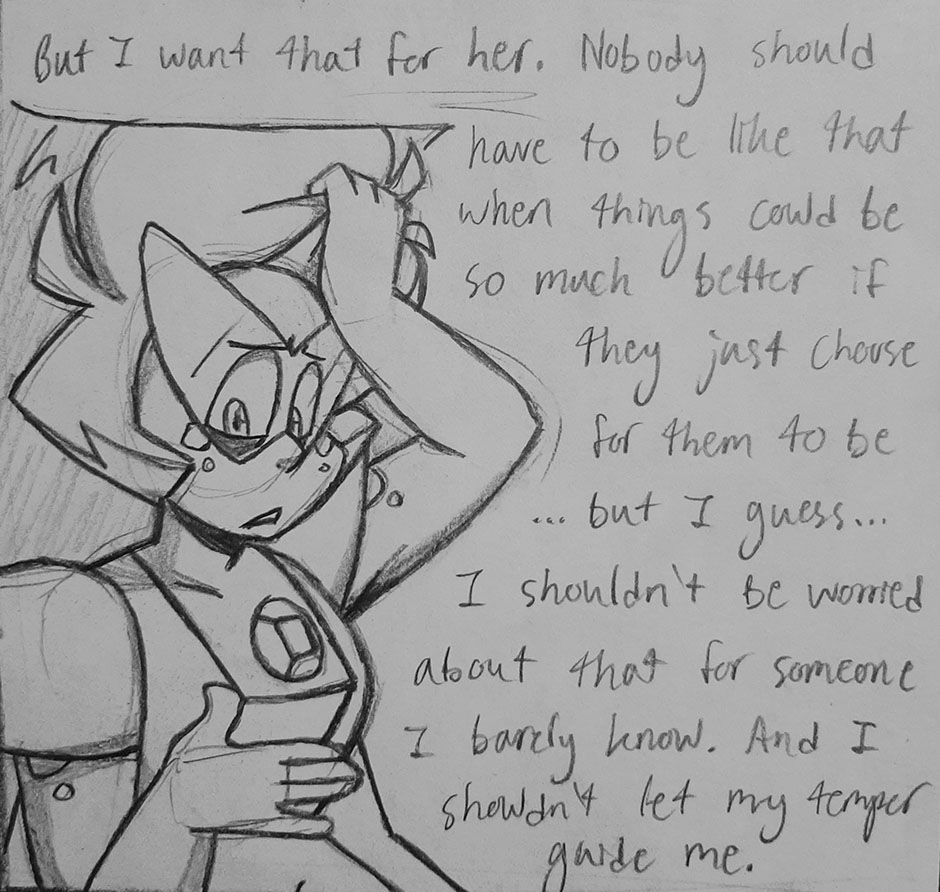 But I want that for her. Nobody should
have to be like that
when things could be
so much better if
they just choose
for them to be
... but I guess...
I shouldn't be worried
about that for someone
I barely know. And I
shouldn't let my temper
guide me.